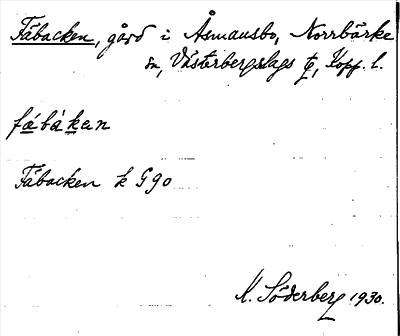 Fäbacken, gård i Åsmansbo, Norrbärke
sn, Västerbergslags tg, Kopp. l.
fǽbàkan
Fäbacken k G90
K. Söderberg 1930.